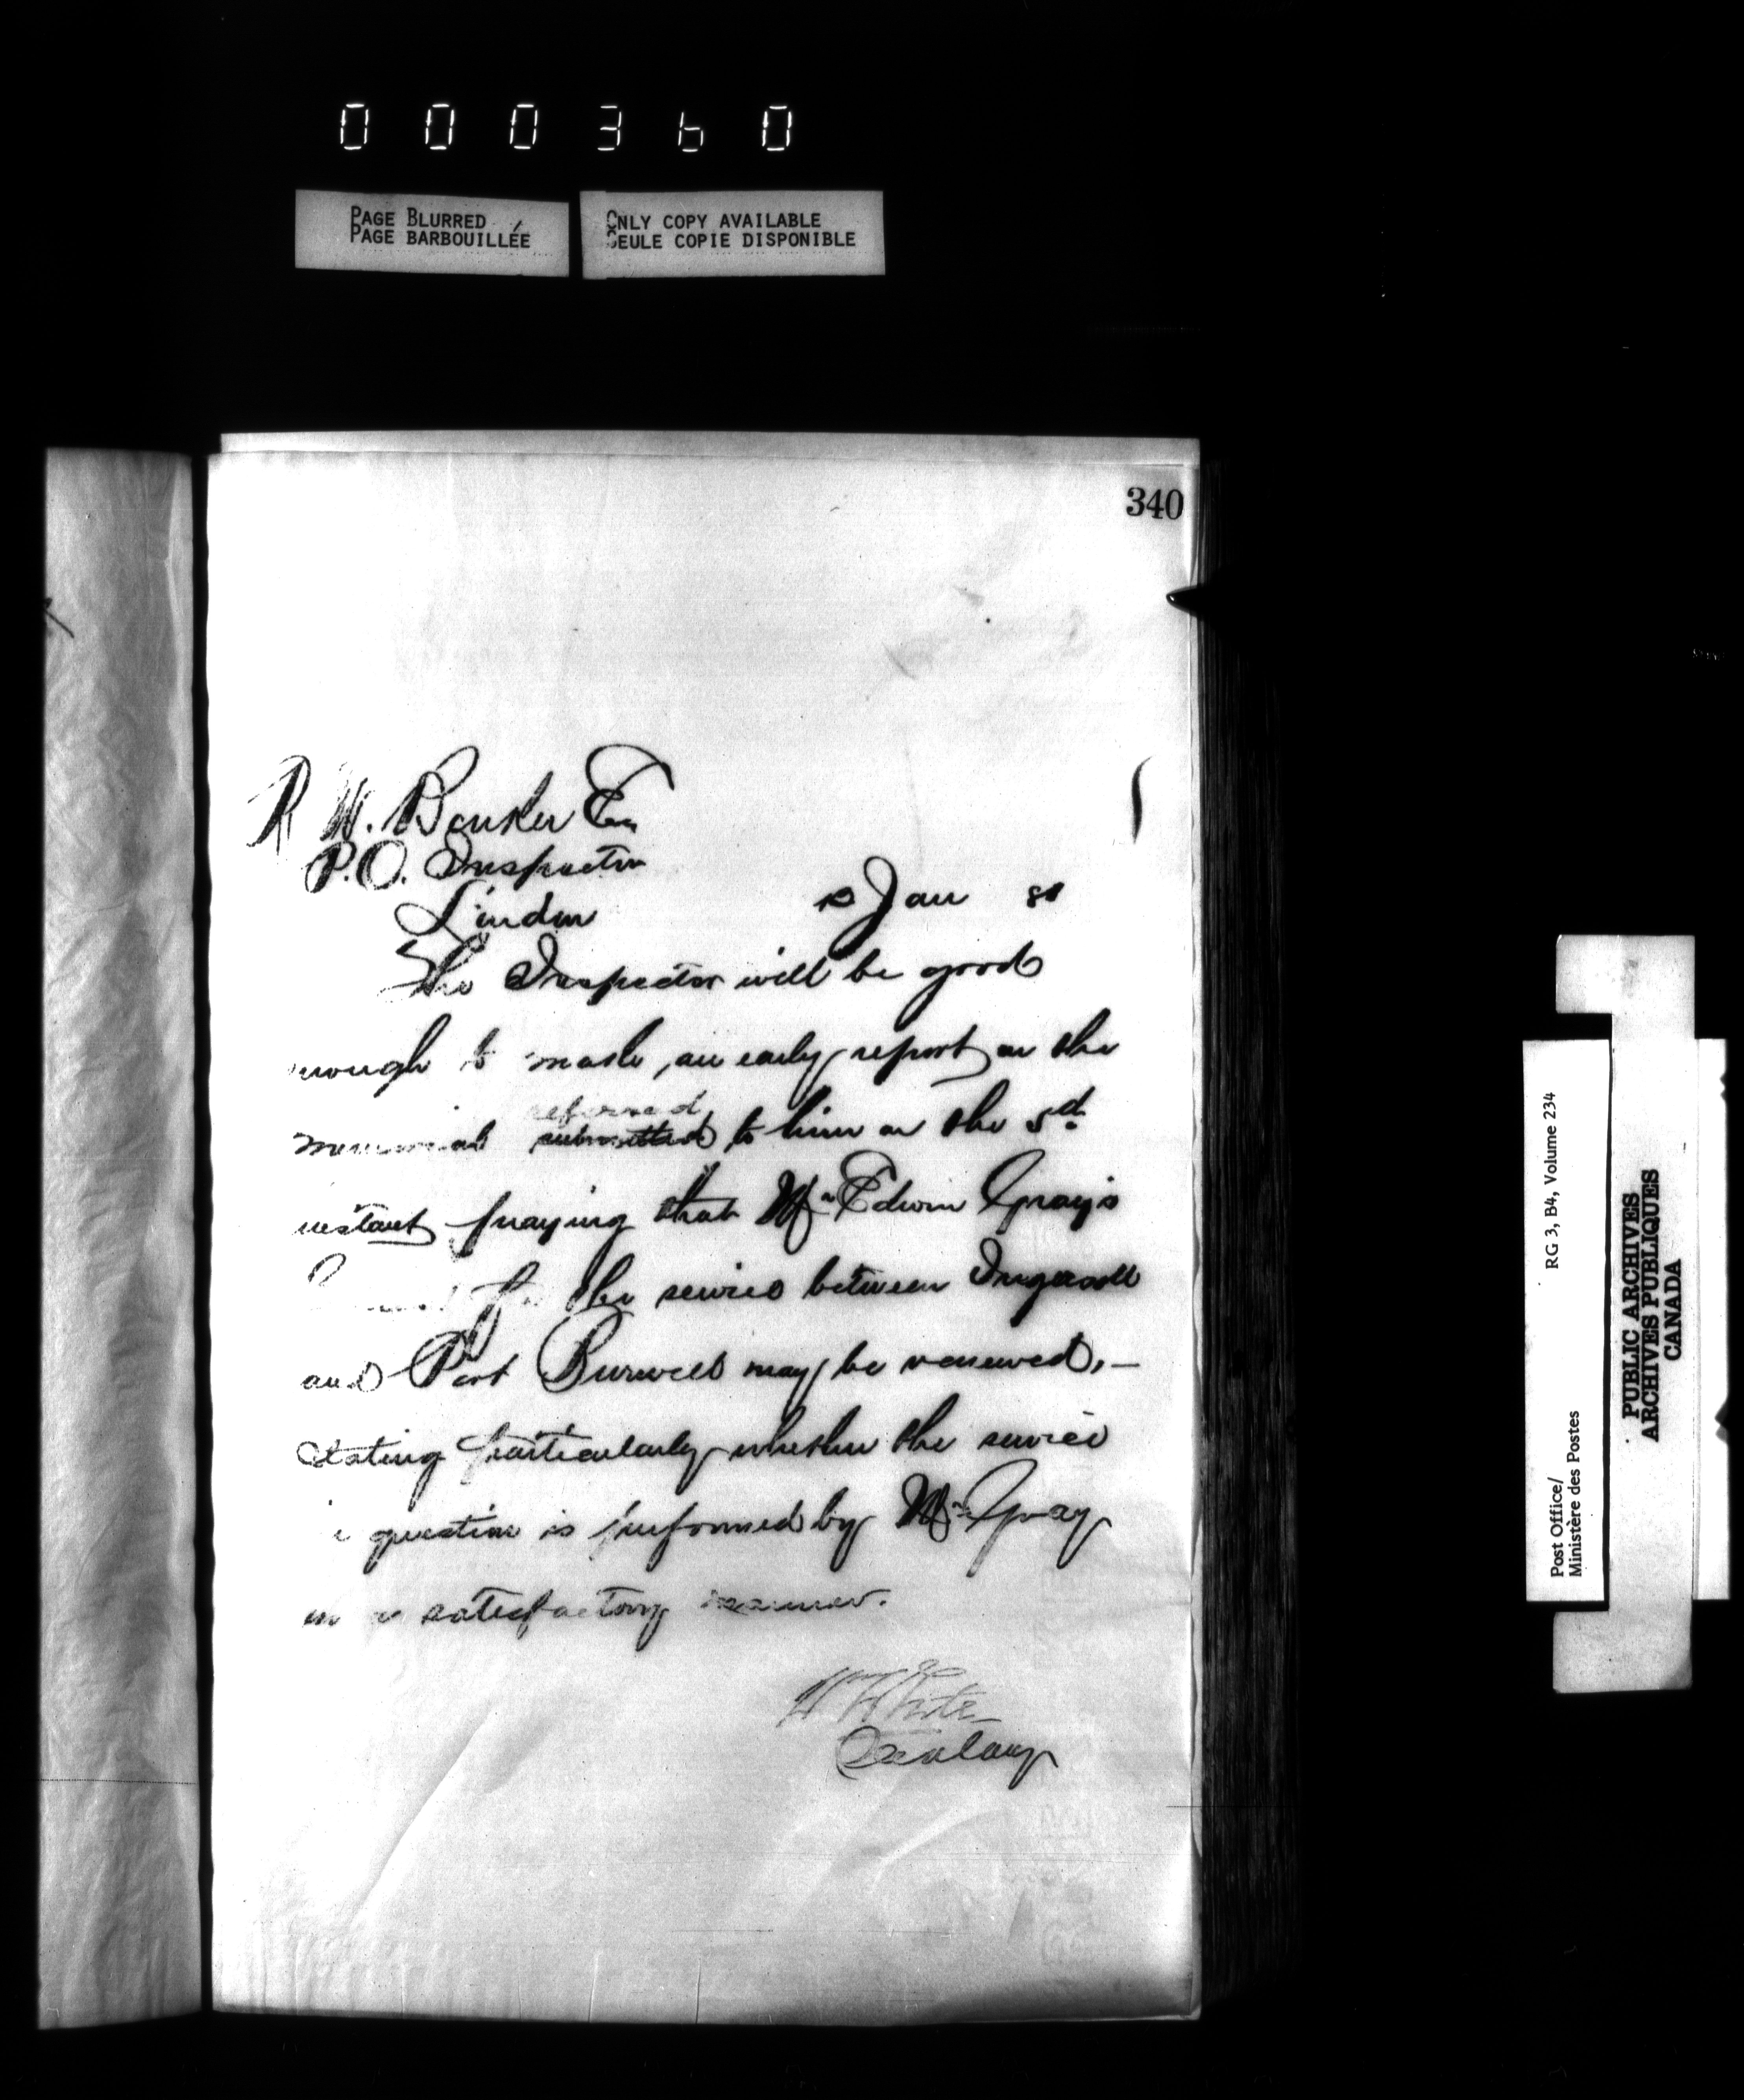 000360
PAGE BLURRED
PAGE BARBOUILLÉE
ONLY COPY AVAILABLE
SEULE COPIE DISPONIBLE
340
R W. Barker Esq
P.O. Inspector
London
Jan
The Inspector will be good
enough to make an early report on the
referred
memorial submitted to him on the 3d
instant praying that Mr Edwin Gray's
for the service between Ingersoll
and Port Burwell may be renewed, —
stating particularly whether the service
in question is performed by Mr Gray
in a satisfactory manner.
W White
Secretary
Post Office/
Ministère des Postes
RG 3, B4, Volume 234
PUBLIC ARCHIVES
ARCHIVES PUBLIQUES
CANADA